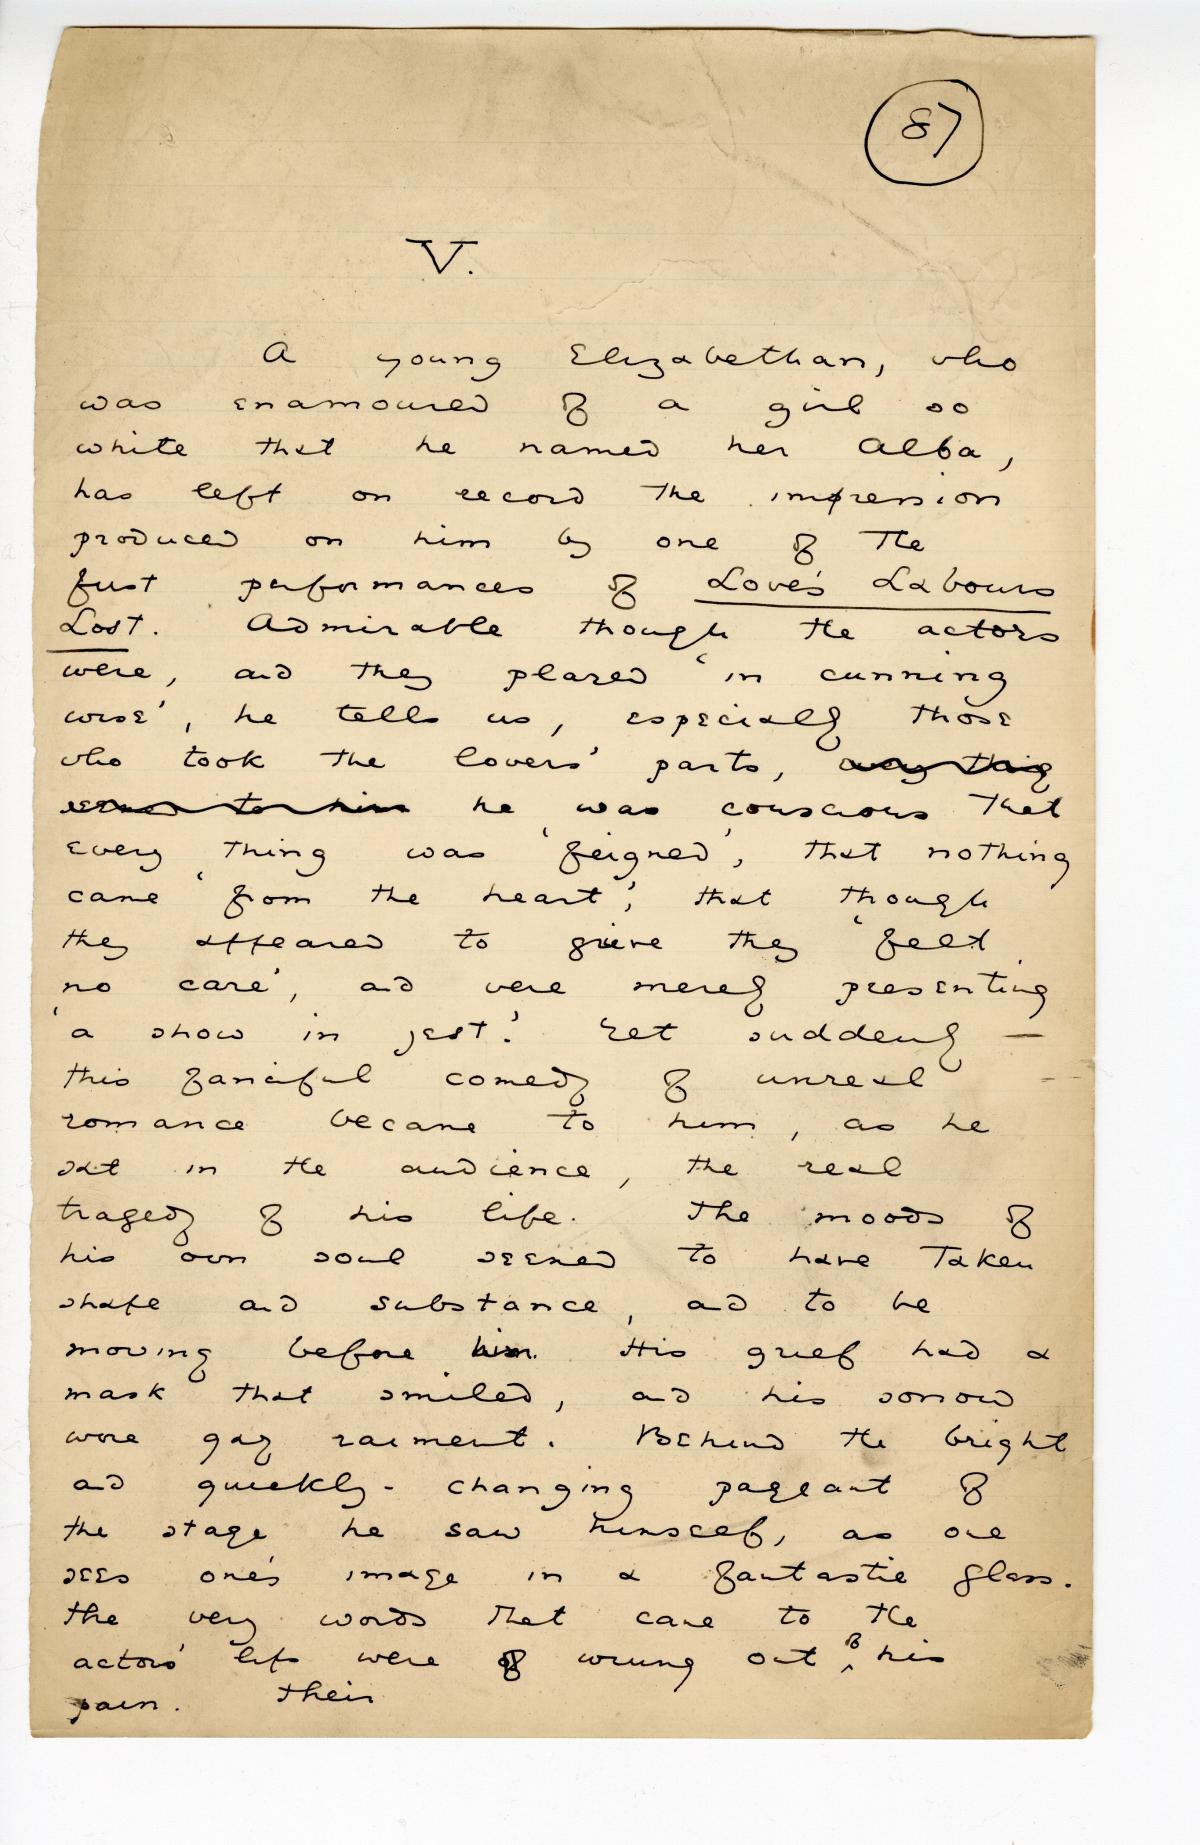 87
V.
A young Elizabethan, who
was enamoured of a girl so
white that he named her Alba,
has left on record the impression
produced on him by one of the
first performances of Love's Labours
Lost. Admirable though the actors
were, and they played 'in cunning
wise', he tells us, especially those
who took the lovers' parts, every thing
seemed to him he was conscious that
every thing was 'feigned', that nothing
came 'from the heart', that though
they appeared to grieve they 'felt
no care', and were merely presenting
'a show in jest.' Yet suddenly —
this fanciful comedy of unreal
romance became to him, as he
sat in the audience, the real
tragedy of his life. The moods of
his own soul seemed to have taken
shape and substance, and to be
moving before him. His grief had a
mask that smiled, and his sorrow
wore gay raiment. Behind the bright
and quickly-changing pageant of
the stage he saw himself, as one
sees one's image in a fantastic glass.
The very words that came to the
actors' lips were wrung out of his
pain. Their